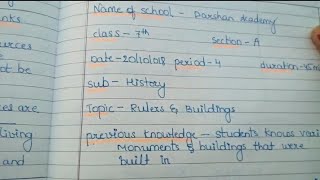 nks
Name of school - Darshan Academy
class - 7th
Section - A
ources
Date - 20/10/018 period - 4 duration - 35 m
ot be
Sub - History
Topic - Rulers & Buildings
es are
previous knowledge - students knows vari
living
Monuments & buildings that were
and
built in